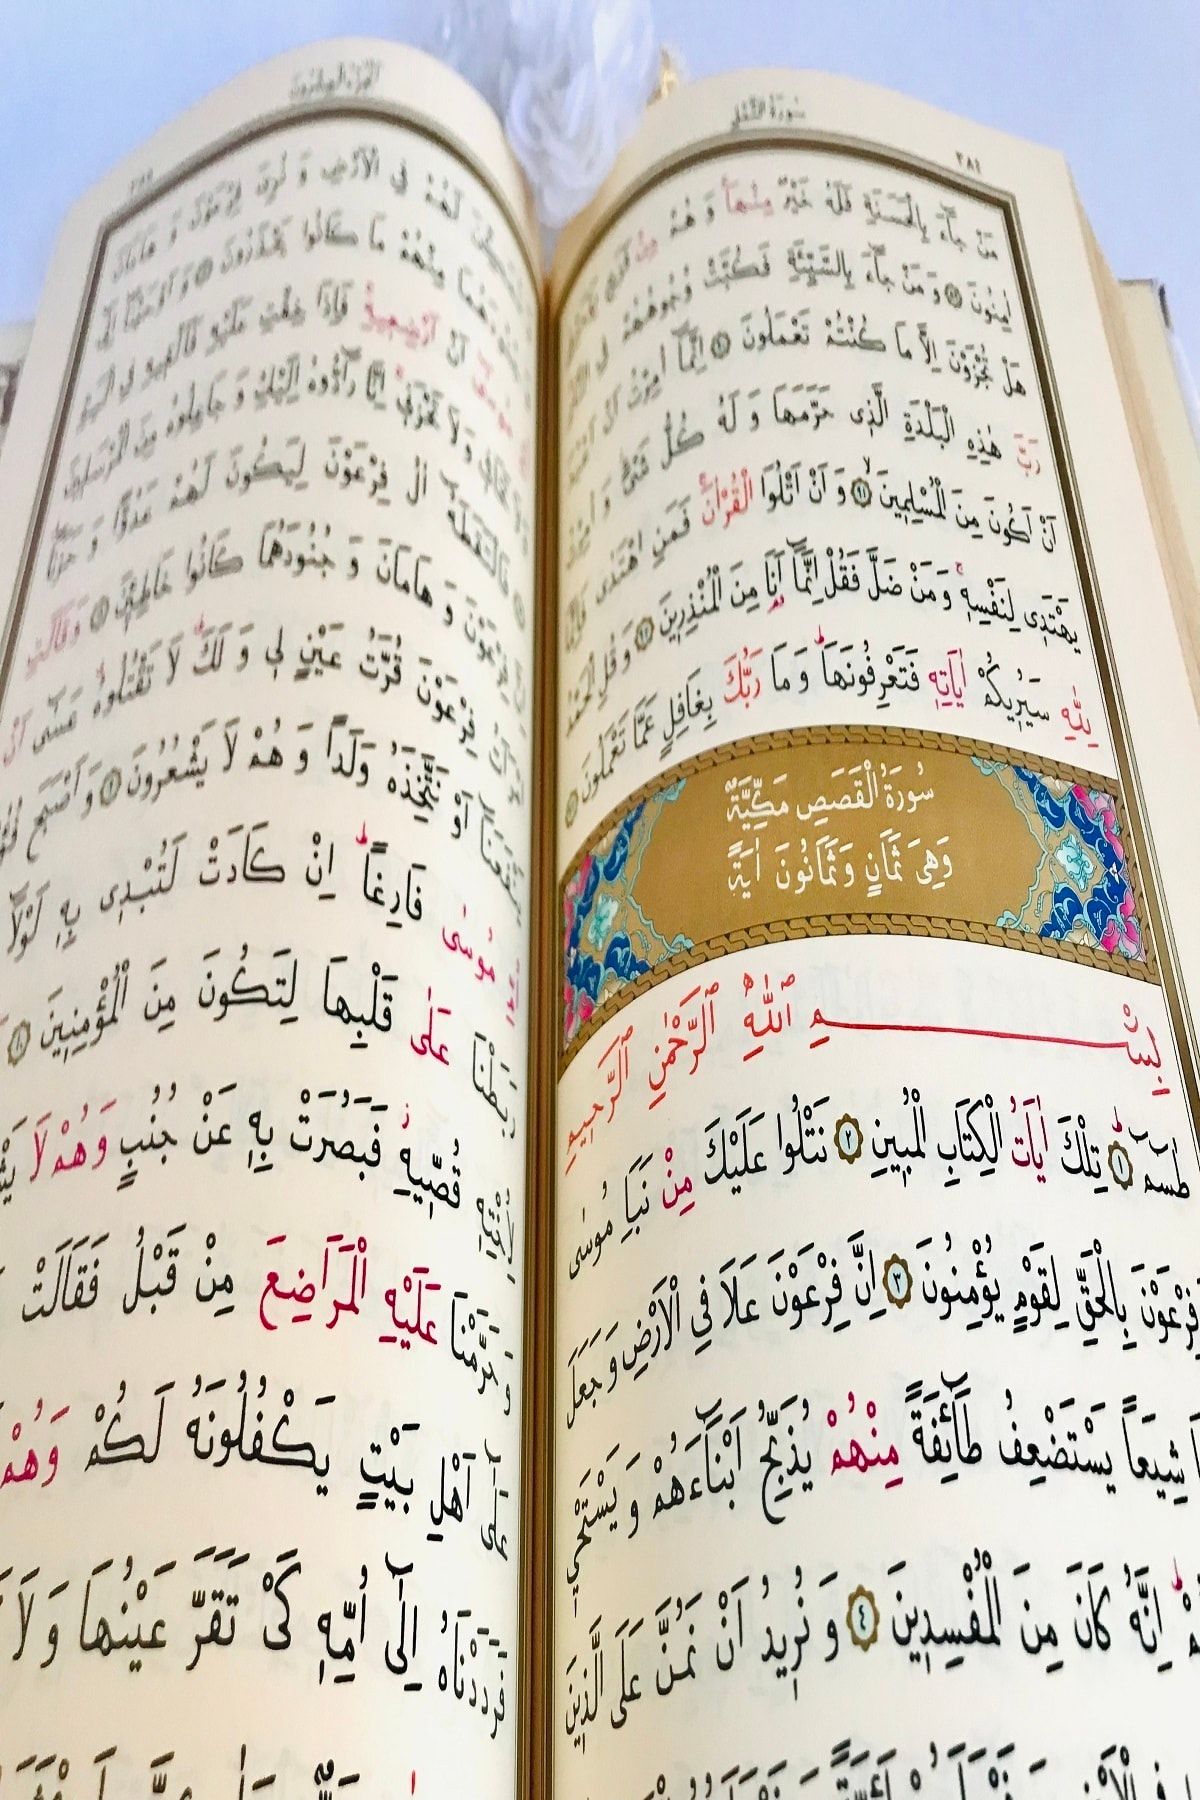 سُورَةُ النَّمْلِ
٣٨٤
مَنْ جَٓاءَ بِالْحَسَنَةِ فَلَهُ خَيْرٌ مِنْهَاۚ وَ هُمْ مِنْ
اٰمِنُونَ ٨٩ وَ مَنْ جَٓاءَ بِالسَّيِّئَةِ فَكُبَّتْ وُجُوهُهُمْ فِي
هَلْ تُجْزَوْنَ اِلَّا مَا كُنْتُمْ تَعْمَلُونَ ٩٠ اِنَّمَٓا اُمِرْتُ اَنْ
رَبَّ هٰذِهِ الْبَلْدَةِ الَّذِى حَرَّمَهَا وَ لَهُ كُلُّ شَىْءٍ وَ اُمِرْتُ
اَنْ اَكُونَ مِنَ الْمُسْلِمِينَ ٩١ وَ اَنْ اَتْلُوَا الْقُرْاٰنَۚ فَمَنِ اهْتَدٰى
يَهْتَدِى لِنَفْسِهِۚ وَمَنْ ضَلَّ فَقُلْ اِنَّمَٓا اَنَا مِنَ الْمُنْذِرِينَ ٩٢ وَ قُلِ الْحَمْدُ
لِلّٰهِ سَيُرِيكُمْ اٰيَاتِهِ فَتَعْرِفُونَهَاۜ وَ مَا رَبُّكَ بِغَافِلٍ عَمَّا تَعْمَلُونَ
سُورَةُ الْقَصَصِ مَكِّيَّةٌ
وَهِىَ ثَمَانٍ وَثَمَانُونَ اٰيَةً
بِسْمِ ٱللّٰهِ ٱلرَّحْمٰنِ ٱلرَّحِيمِ
طٰسٓمٓۜ ١ تِلْكَ اٰيَاتُ الْكِتَابِ الْمُبِينِ ٢ نَتْلُوا عَلَيْكَ مِنْ نَبَاِ مُوسٰى
فِرْعَوْنَ بِالْحَقِّ لِقَوْمٍ يُؤْمِنُونَ ٣ اِنَّ فِرْعَوْنَ عَلَا فِي الْاَرْضِ وَ جَعَلَ
شِيَعاً يَسْتَضْعِفُ طَٓائِفَةً مِنْهُمْ يُذَبِّحُ اَبْنَٓاءَهُمْ وَ يَسْتَحْيِي
اِنَّهُ كَانَ مِنَ الْمُفْسِدِينَ ٤ وَ نُرِيدُ اَنْ نَمُنَّ عَلَى الَّذِينَ
لَهُمْ فِي الْاَرْضِ وَ نُرِيَ فِرْعَوْنَ وَ هَامَانَ
مِنْهُمْ مَا كَانُوا يَحْذَرُونَ ٦ وَ اَوْحَيْنَٓا اِلٰٓى
اَنْ اَرْضِعِيهِۚ فَاِذَا خِفْتِ عَلَيْهِ فَاَلْقِيهِ فِي الْيَمِّ
وَ لَا تَحْزَنِيۚ اِنَّا رَٓادُّوهُ اِلَيْكِ وَ جَاعِلُوهُ مِنَ الْمُرْسَلِينَ
فَالْتَقَطَهُٓ اٰلُ فِرْعَوْنَ لِيَكُونَ لَهُمْ عَدُوًّا وَ حَزَناًۜ
فِرْعَوْنَ وَ هَامَانَ وَ جُنُودَهُمَا كَانُوا خَاطِئِينَ ٨ وَ قَالَتِ
فِرْعَوْنَ قُرَّتُ عَيْنٍ لِي وَ لَكَۜ لَا تَقْتُلُوهُۗ عَسٰٓى اَنْ
يَنْفَعَنَٓا اَوْ نَتَّخِذَهُ وَلَداً وَ هُمْ لَا يَشْعُرُونَ ٩ وَ اَصْبَحَ
مُوسٰى فَارِغاًۜ اِنْ كَادَتْ لَتُبْدِى بِهِ لَوْلَٓا
رَبَطْنَا عَلٰى قَلْبِهَا لِتَكُونَ مِنَ الْمُؤْمِنِينَ ١٠
لِاُخْتِهِ قُصِّيهِۘ فَبَصُرَتْ بِهِ عَنْ جُنُبٍ وَ هُمْ لَا
وَ حَرَّمْنَا عَلَيْهِ الْمَرَاضِعَ مِنْ قَبْلُ فَقَالَتْ
عَلٰٓى اَهْلِ بَيْتٍ يَكْفُلُونَهُ لَكُمْ وَ هُمْ
فَرَدَدْنَاهُ اِلٰٓى اُمِّهِ كَىْ تَقَرَّ عَيْنُهَا وَ لَا